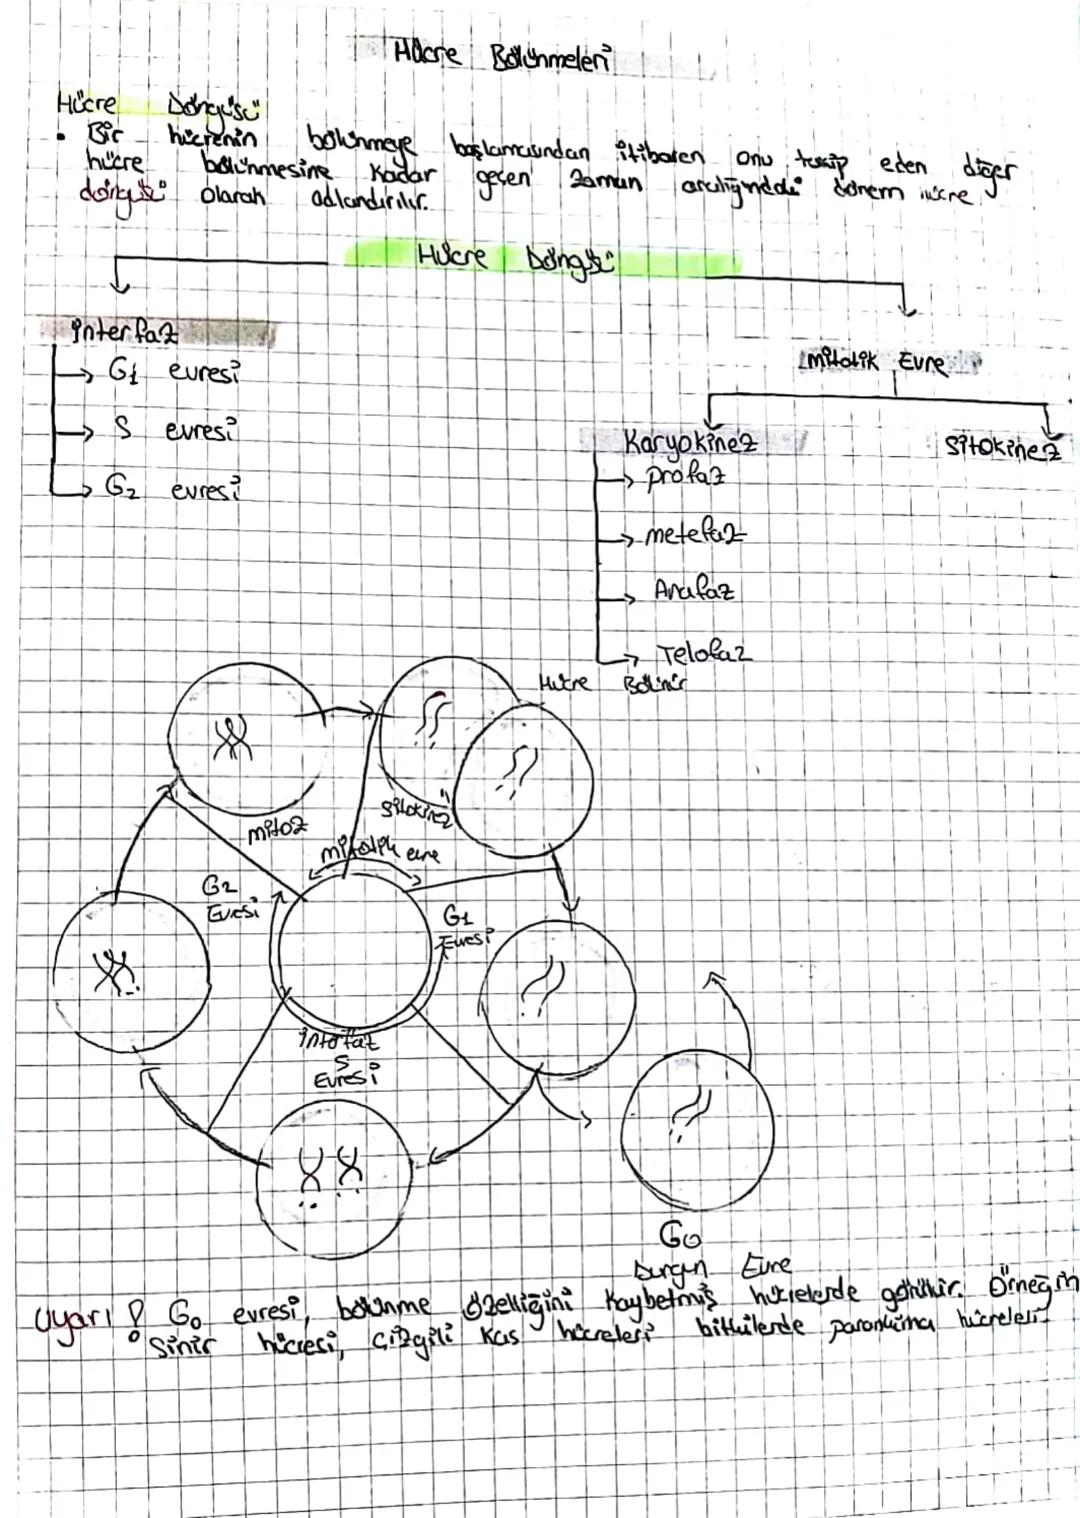 Hücre Bölünmeleri
Hücre Döngüsü
• Bir hücrenin bölünmeye başlamasından itibaren onu takip eden diğer
hücre bölünmesine kadar geçen zaman aralığındaki dönem hücre
döngüsü olarak adlandırılır.
Hücre Döngüsü
interfaz
G1 evresi
S evresi
G2 evresi
mitotik Evre
Karyokinez
Sitokinez
profaz
metefaz
Anafaz
Telofaz
Hücre Bölünür
mitoz
Sitokinez
mitotik evre
G2
Evresi
G1
Evresi
interfaz
S
Evresi
G0
Durgun Evre
Uyarı ! G0 evresi, bölünme özelliğini kaybetmiş hücrelerde görülür. Örneğin
Sinir hücresi, Çizgili kas hücreleri bitkilerde parankima hücreleri